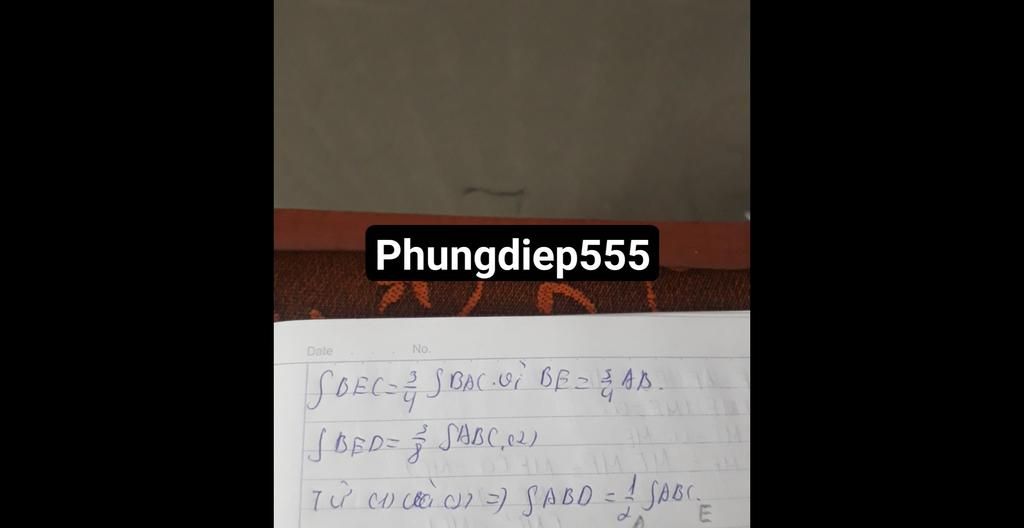 Phungdiep555
Date No.
SBEC = 3/4 SBAC. Vì BE = 3/4 AB.
SBED = 3/8 SABC. (2)
Từ (1) và (2) => SABD = 1/2 SABC.
E